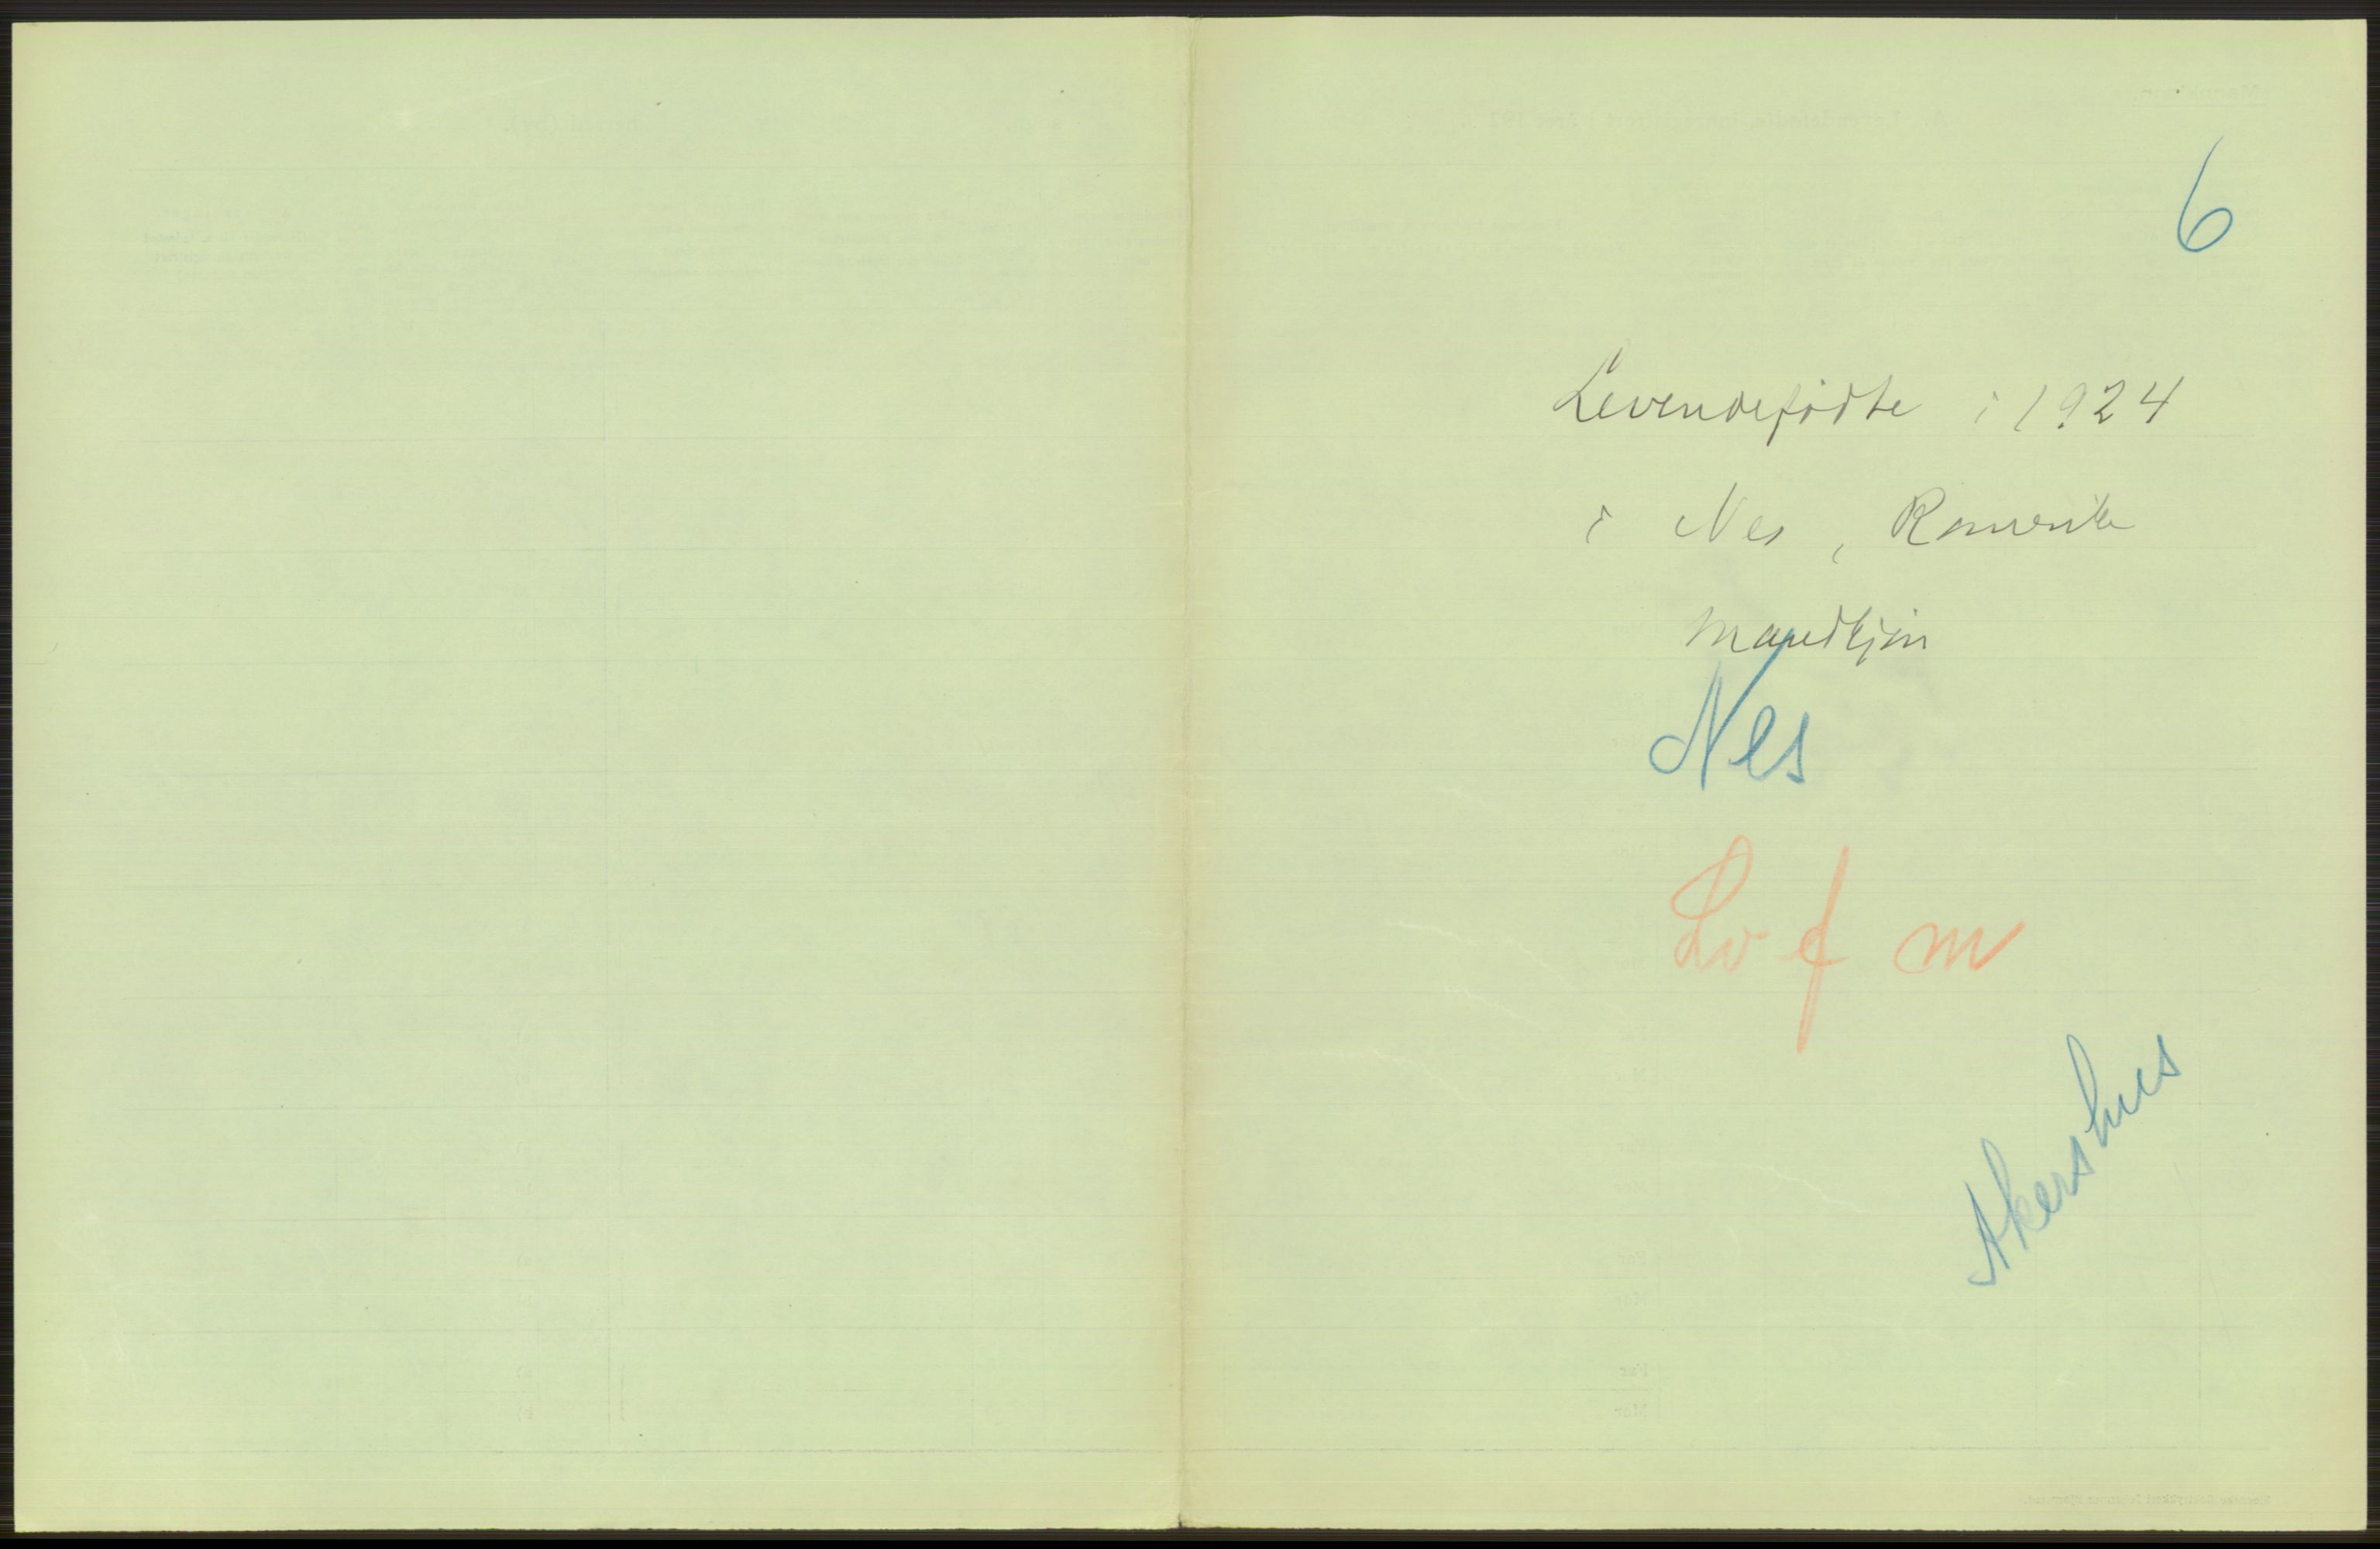 6
Levendefødte i 1924
i Nes, Romerike
Mandkjøn
Nes
Lv f m
Akershus